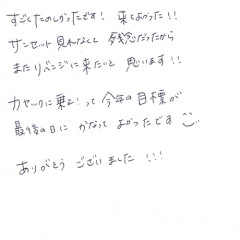 すごくたのしかったです! 来てよかった!!
サンセット見れなくて残念だったから
またリベンジに来たいと思います!!
カヤックに乗る!って今年の目標が
最後の日にかなってよかったです
ありがとうございました!!!